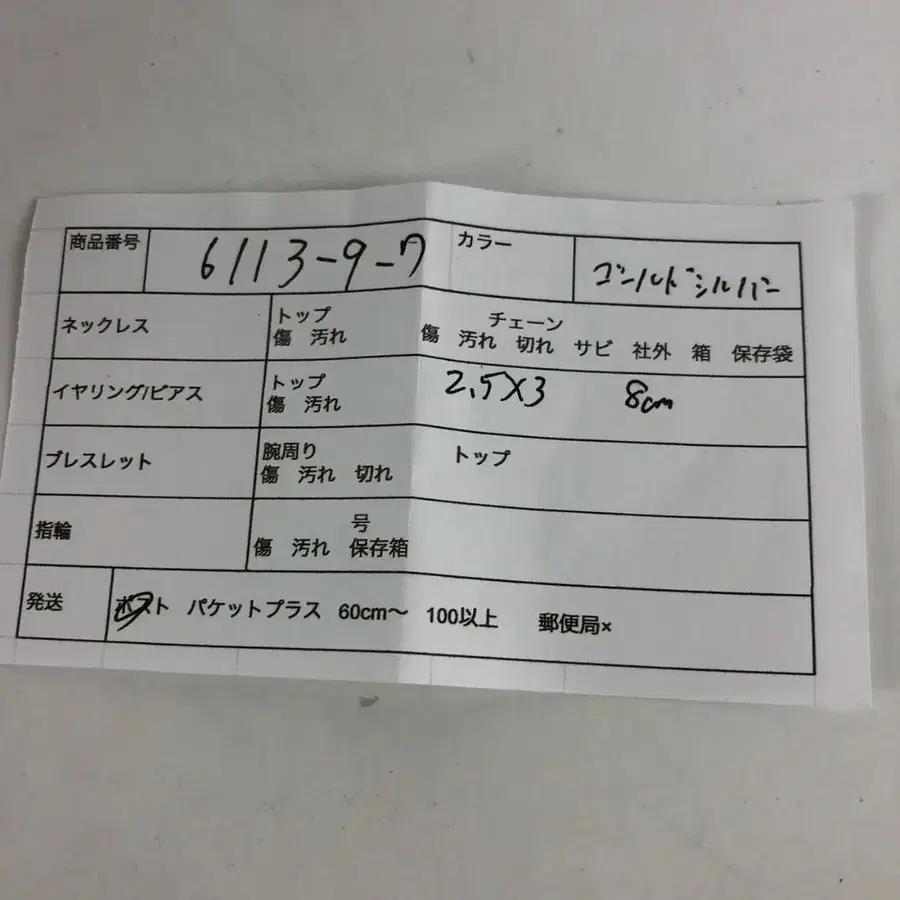 商品番号 6113-9-7 カラー ゴールドシルバー
ネックレス トップ チェーン
傷 汚れ 傷 汚れ 切れ サビ 社外 箱 保存袋
イヤリング/ピアス トップ 2.5×3 8cm
傷 汚れ
ブレスレット 腕周り トップ
傷 汚れ 切れ
指輪 号
傷 汚れ 保存箱
発送 ポスト パケットプラス 60cm〜 100以上 郵便局×